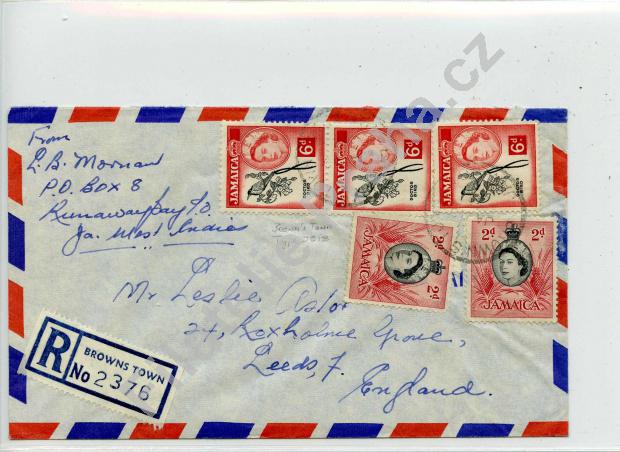 From
P.O. Box 8
Runaway Bay P.O.
Ja. West Indies
JAMAICA 6d
DOCTOR BIRD
JAMAICA 6d
DOCTOR BIRD
JAMAICA 6d
DOCTOR BIRD
JAMAICA 2d 2d
2d 2d
JAMAICA
BROWN'S TOWN
Mr Leslie
24, Roxholme Grove,
Leeds, 7.
England.
R
BROWNS TOWN
No 2376
.cz